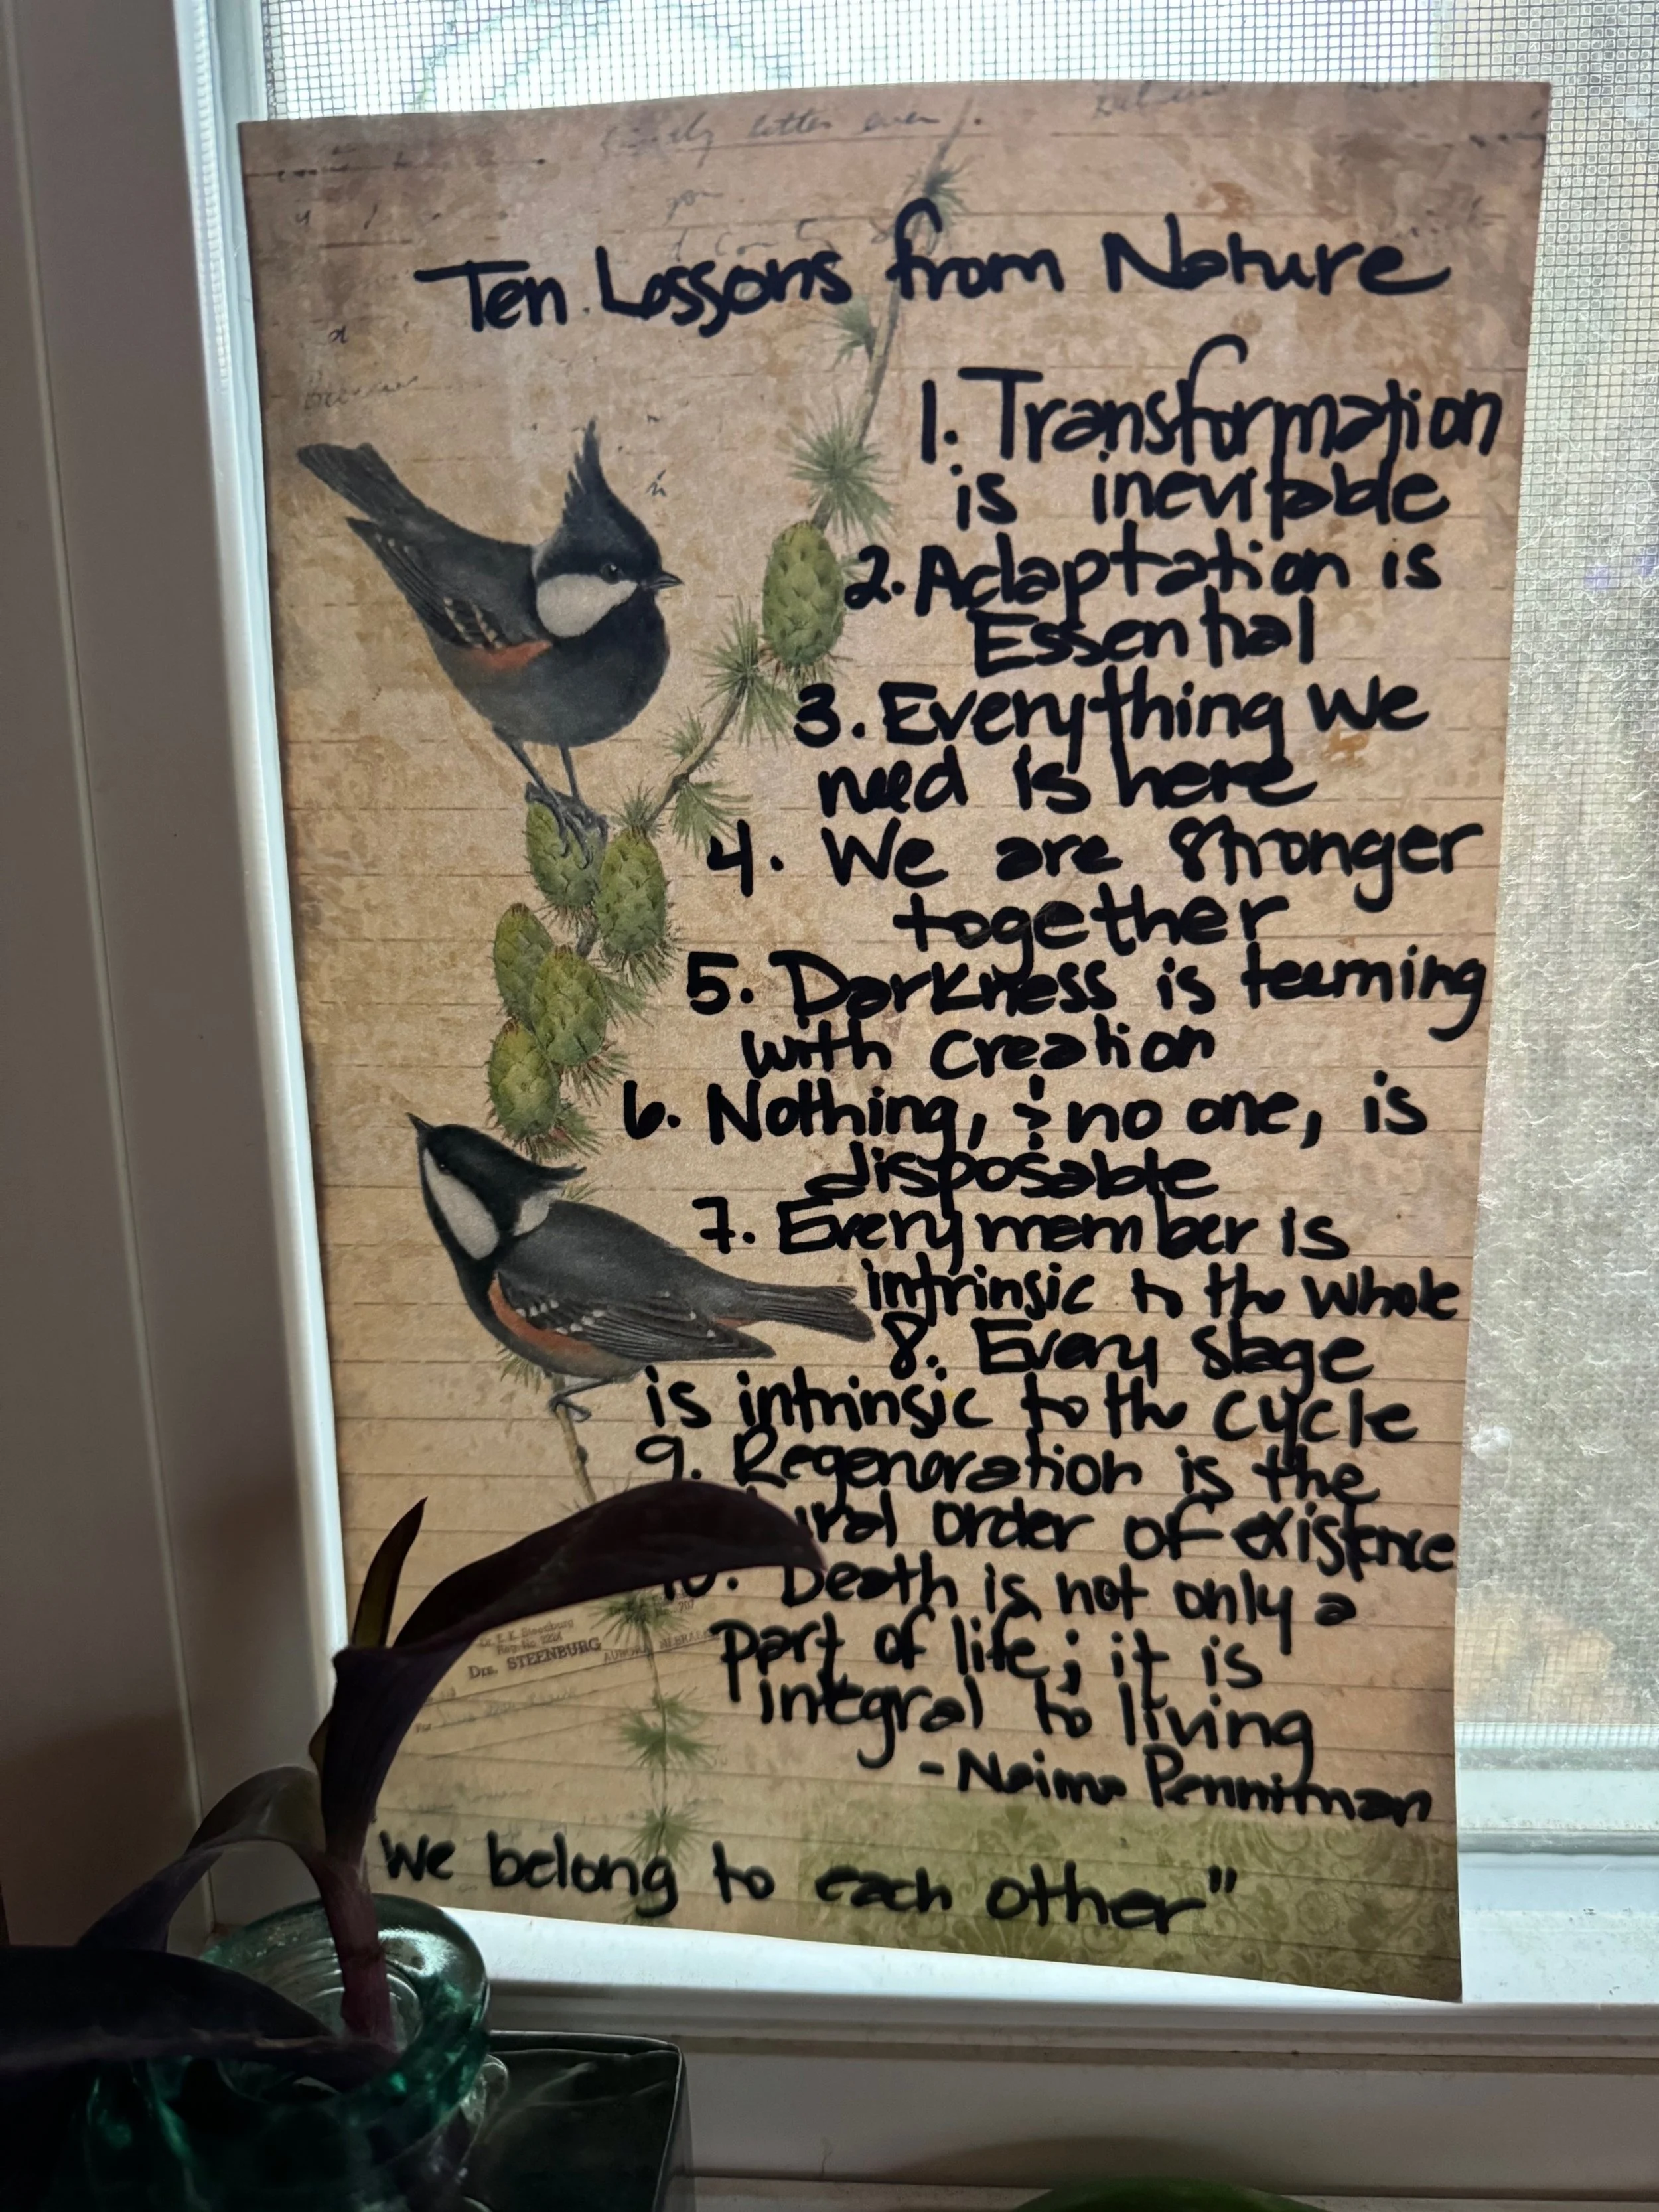 Ten Lessons from Nature
1. Transformation
is inevitable
2. Adaptation is
Essential
3. Everything we
need is here
4. We are stronger
together
5. Darkness is teeming
with creation
6. Nothing, & no one, is
disposable
7. Every member is
intrinsic to the whole
8. Every stage
is intrinsic to the cycle
9. Regeneration is the
order of existence
10. Death is not only a
part of life; it is
integral to living
- Naima Penniman
DRS. STEENBURG
We belong to each other"